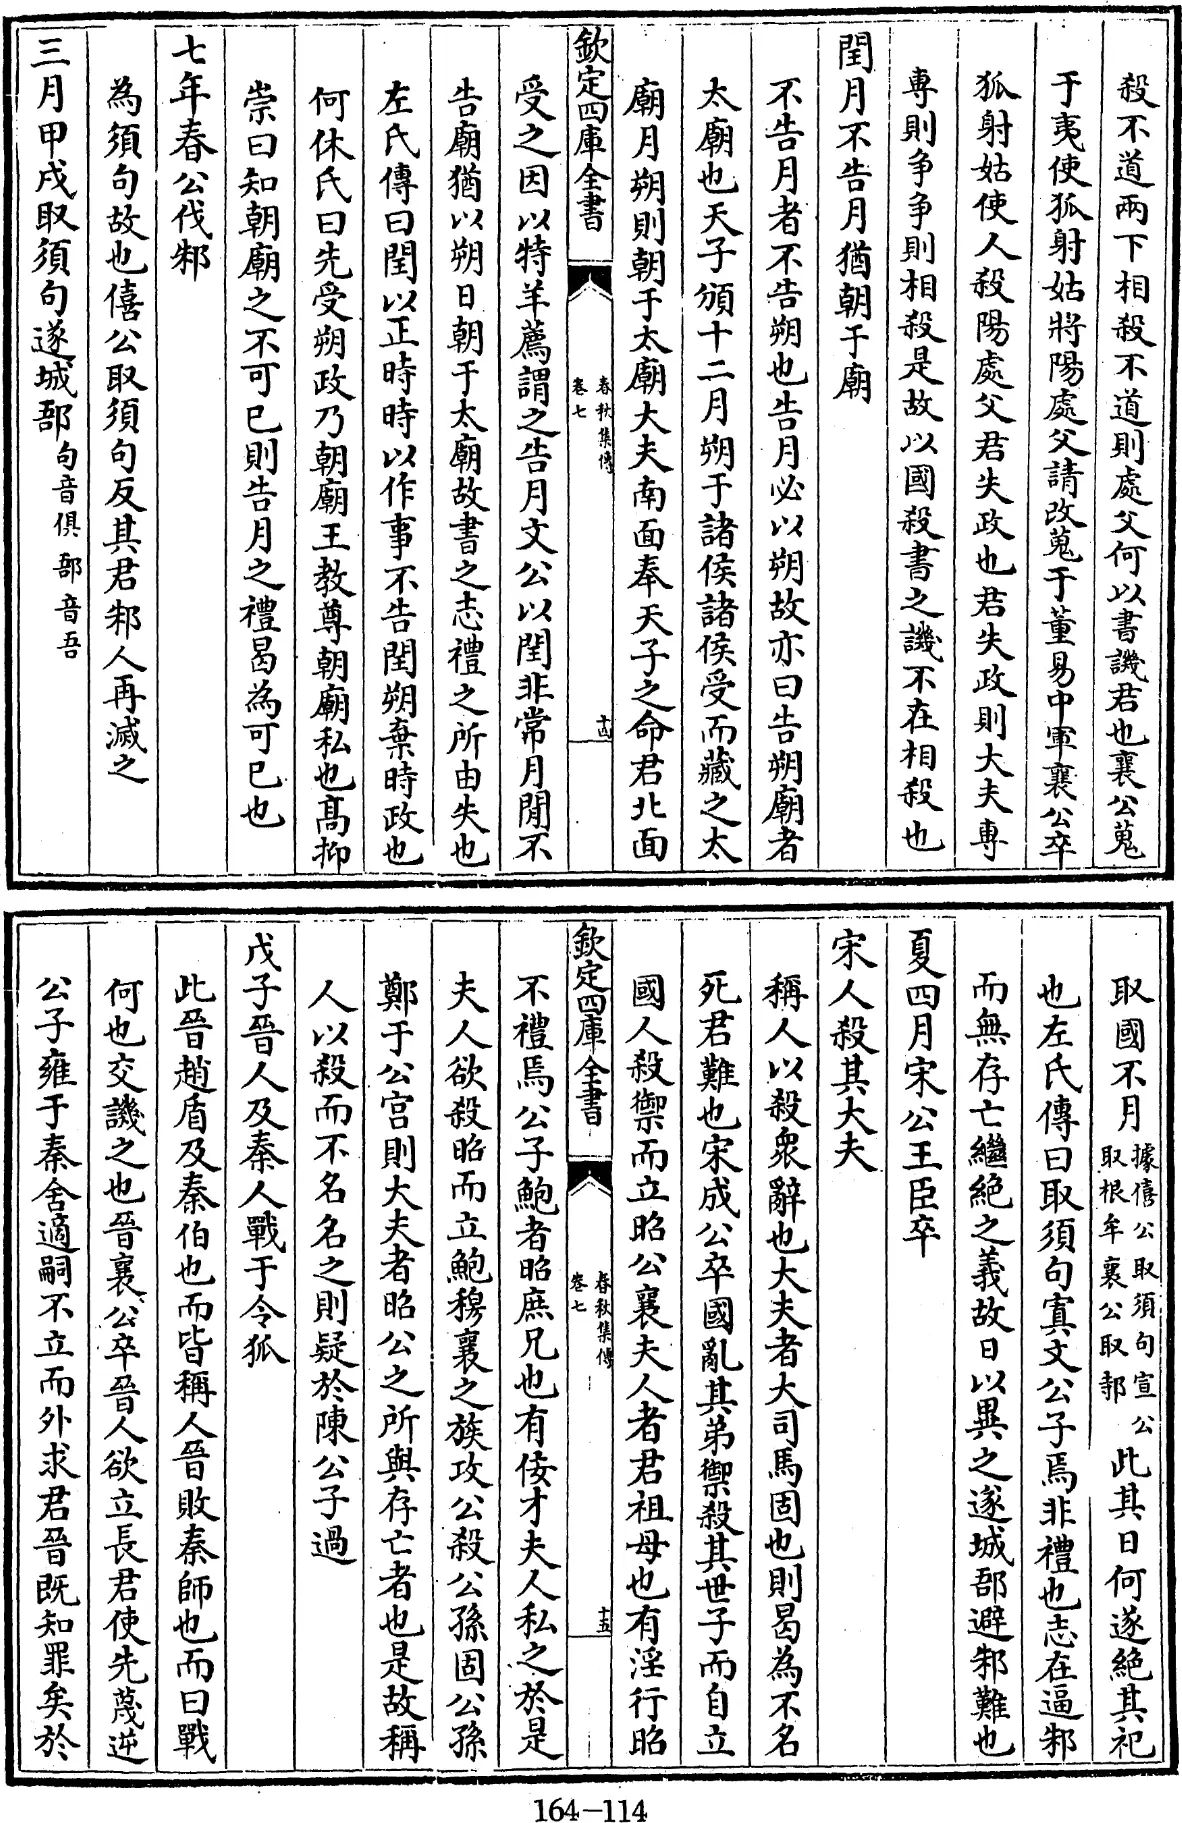 殺不道兩下相殺不道則處父何以書譏君也襄公蒐
于夷使狐射姑將陽處父請改蒐于董易中軍襄公卒
狐射姑使人殺陽處父君失政也君失政則大夫專
專則争争則相殺是故以國殺書之譏不在相殺也
閏月不告月猶朝于廟
不告月者不告朔也告月必以朔故亦曰告朔廟者
太廟也天子頒十二月朔于諸侯諸侯受而藏之太
廟月朔則朝于太廟大夫南面奉天子之命君北面
欽定四庫全書
春秋集傳
卷七
十四
受之因以特羊薦謂之告月文公以閏非常月閒不
告廟猶以朔日朝于太廟故書之志禮之所由失也
左氏傳曰閏以正時時以作事不告閏朔棄時政也
何休氏曰先受朔政乃朝廟王教尊朝廟私也髙抑
崇曰知朝廟之不可已則告月之禮曷為可已也
七年春公伐邾
為須句故也僖公取須句反其君邾人再滅之
三月甲戌取須句遂城郚句音俱郚音吾
取國不月據僖公取須句宣公取根牟襄公取邿此其日何遂絶其祀
也左氏傳曰取須句寘文公子焉非禮也志在逼邾
而無存亡繼絶之義故日以異之遂城郚避邾難也
夏四月宋公王臣卒
宋人殺其大夫
稱人以殺衆辭也大夫者大司馬固也則曷為不名
死君難也宋成公卒國亂其弟禦殺其世子而自立
國人殺禦而立昭公襄夫人者君祖母也有淫行昭
欽定四庫全書
春秋集傳
卷七
十五
不禮焉公子鮑者昭庶兄也有倭才夫人私之於是
夫人欲殺昭而立鮑穆襄之族攻公殺公孫固公孫
鄭于公宫則大夫者昭公之所與存亡者也是故稱
人以殺而不名名之則疑於陳公子過
戊子晉人及秦人戰于令狐
此晉趙盾及秦伯也而皆稱人晉敗秦師也而曰戰
何也交譏之也晉襄公卒晉人欲立長君使先蔑逆
公子雍于秦舍適嗣不立而外求君晉既知罪矣於
164-114